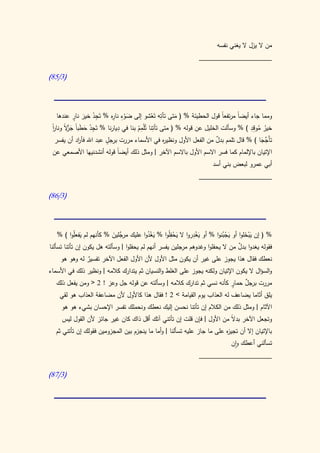 من لا يزل لا يغني نفسه
__________
(85/3)

ومما جاء أيضاً مرتفعاً قول الحطيئة % ( متى تأته تَعْشو إلى ضَوْء ناره % تَجِدْ خيرَ نارٍ عندها
خيرُ مُوقِدِ ) % وسألت الخليل عن قوله % ( متى تأتِنا تُلْمِمْ بنا في ديارِنا % تَجِدْ حَطَباً جَزْلاً وناراً
تأجَّجَا ) % قال تلمم بدلٌ من الفعل الأول ونظيره في الأسماء مررت برجل عبد الله فأراد أن يفسر
الإتيان بالإلمام كما فسر الاسم الأول بالاسم الآخر | ومثل ذلك أيضاً قوله أنشدنيها الأصمعي عن
أبي عمرو لبعض بني أسد
__________
(86/3)

% ( إن يَبْخَلوا أو يَجْبُنوا % أو يَغْدِروا لا يَحْفِلُوا % يَغْدُوا عليك مرجَّلين % كأنهم لم يفعلُوا ) %
فقوله يغدوا بدلٌ من لا يحفلوا وغدوهم مرجلين يفسر أنهم لم يحفلوا | وسألته هل يكون إن تأتنا تسألنا
نعطك فقال هذا يجوز على غير أن يكون مثل الأول لأن الأول الفعل الآخر تفسيرٌ له وهو هو
والسؤال لا يكون الإتيان ولكنه يجوز على الغلط والنسيان ثم يتدارك كلامه | ونظير ذلك في الأسماء
مررت برجلٍ حمارٍ كأنه نسي ثم تدارك كلامه | وسألته عن قوله جل وعز ! 2 < ومن يفعل ذلك
يلق أثاما يضاعف له العذاب يوم القيامة > 2 ! فقال هذا كالأول لأن مضاعفة العذاب هو لقي
الآثام | ومثل ذلك من الكلام إن تأتنا نحسن إليك نعطك ونحملك تفسر الإحسان بشيء هو هو
وتجعل الآخر بدلاً من الأول | فإن قلت إن تأتني آتك أقل ذاك كان غير جائز لأن القول ليس
بالإتيان إلا أن تجيزه على ما جاز عليه تسألنا | وأما ما ينجزم بين المجزومين فقولك إن تأتني ثم
تسألني أعطك وإن
__________
(87/3)